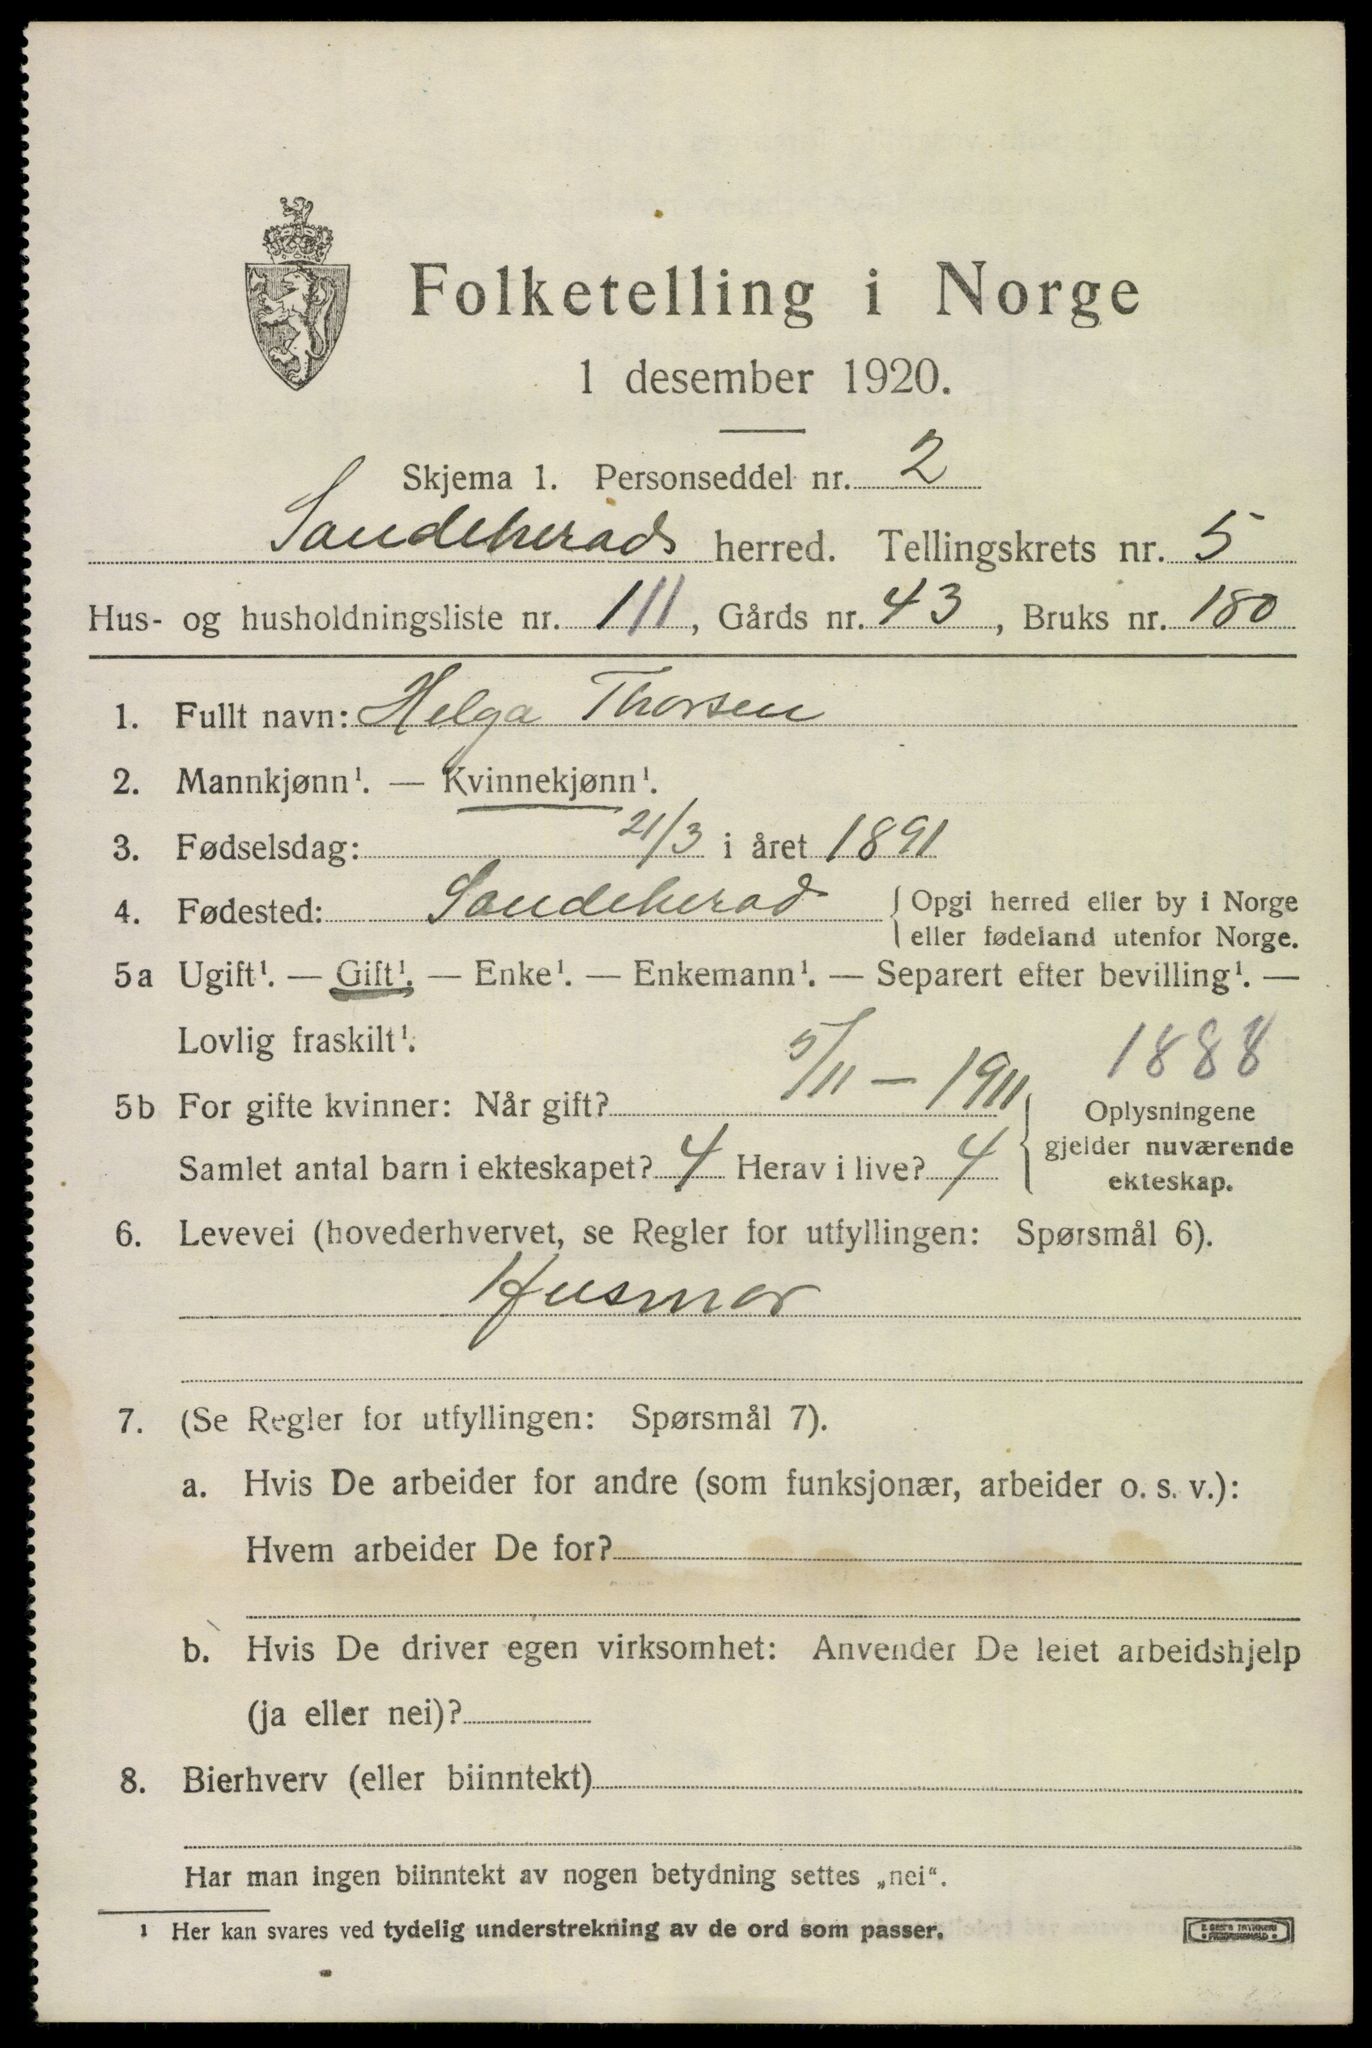 Folketelling i Norge
1 desember 1920.
Skjema 1. Personseddel nr. 2
Sandeherads herred. Tellingskrets nr. 5
Hus- og husholdningsliste nr. 111, Gårds nr. 43, Bruks nr. 180
1. Fullt navn: Helga Thorsen
2. Mannkjønn¹. — Kvinnekjønn¹.
3. Fødselsdag: 21/3 i året 1891
4. Fødested: Sandeherad { Opgi herred eller by i Norge
eller fødeland utenfor Norge.
5a Ugift¹. — Gift¹. — Enke¹. — Enkemann¹. — Separert efter bevilling¹. —
Lovlig fraskilt¹.
1888
5b For gifte kvinner: Når gift? 5/11 — 1911
Samlet antal barn i ekteskapet? 4 Herav i live? 4
Oplysningene
gjelder nuværende
ekteskap.
6. Levevei (hovederhvervet, se Regler for utfyllingen: Spørsmål 6).
Husmor
7. (Se Regler for utfyllingen: Spørsmål 7).
a. Hvis De arbeider for andre (som funksjonær, arbeider o. s. v.):
Hvem arbeider De for?
b. Hvis De driver egen virksomhet: Anvender De leiet arbeidshjelp
(ja eller nei)?
8. Bierhverv (eller biinntekt)
Har man ingen biinntekt av nogen betydning settes „nei“.
¹ Her kan svares ved tydelig understrekning av de ord som passer.